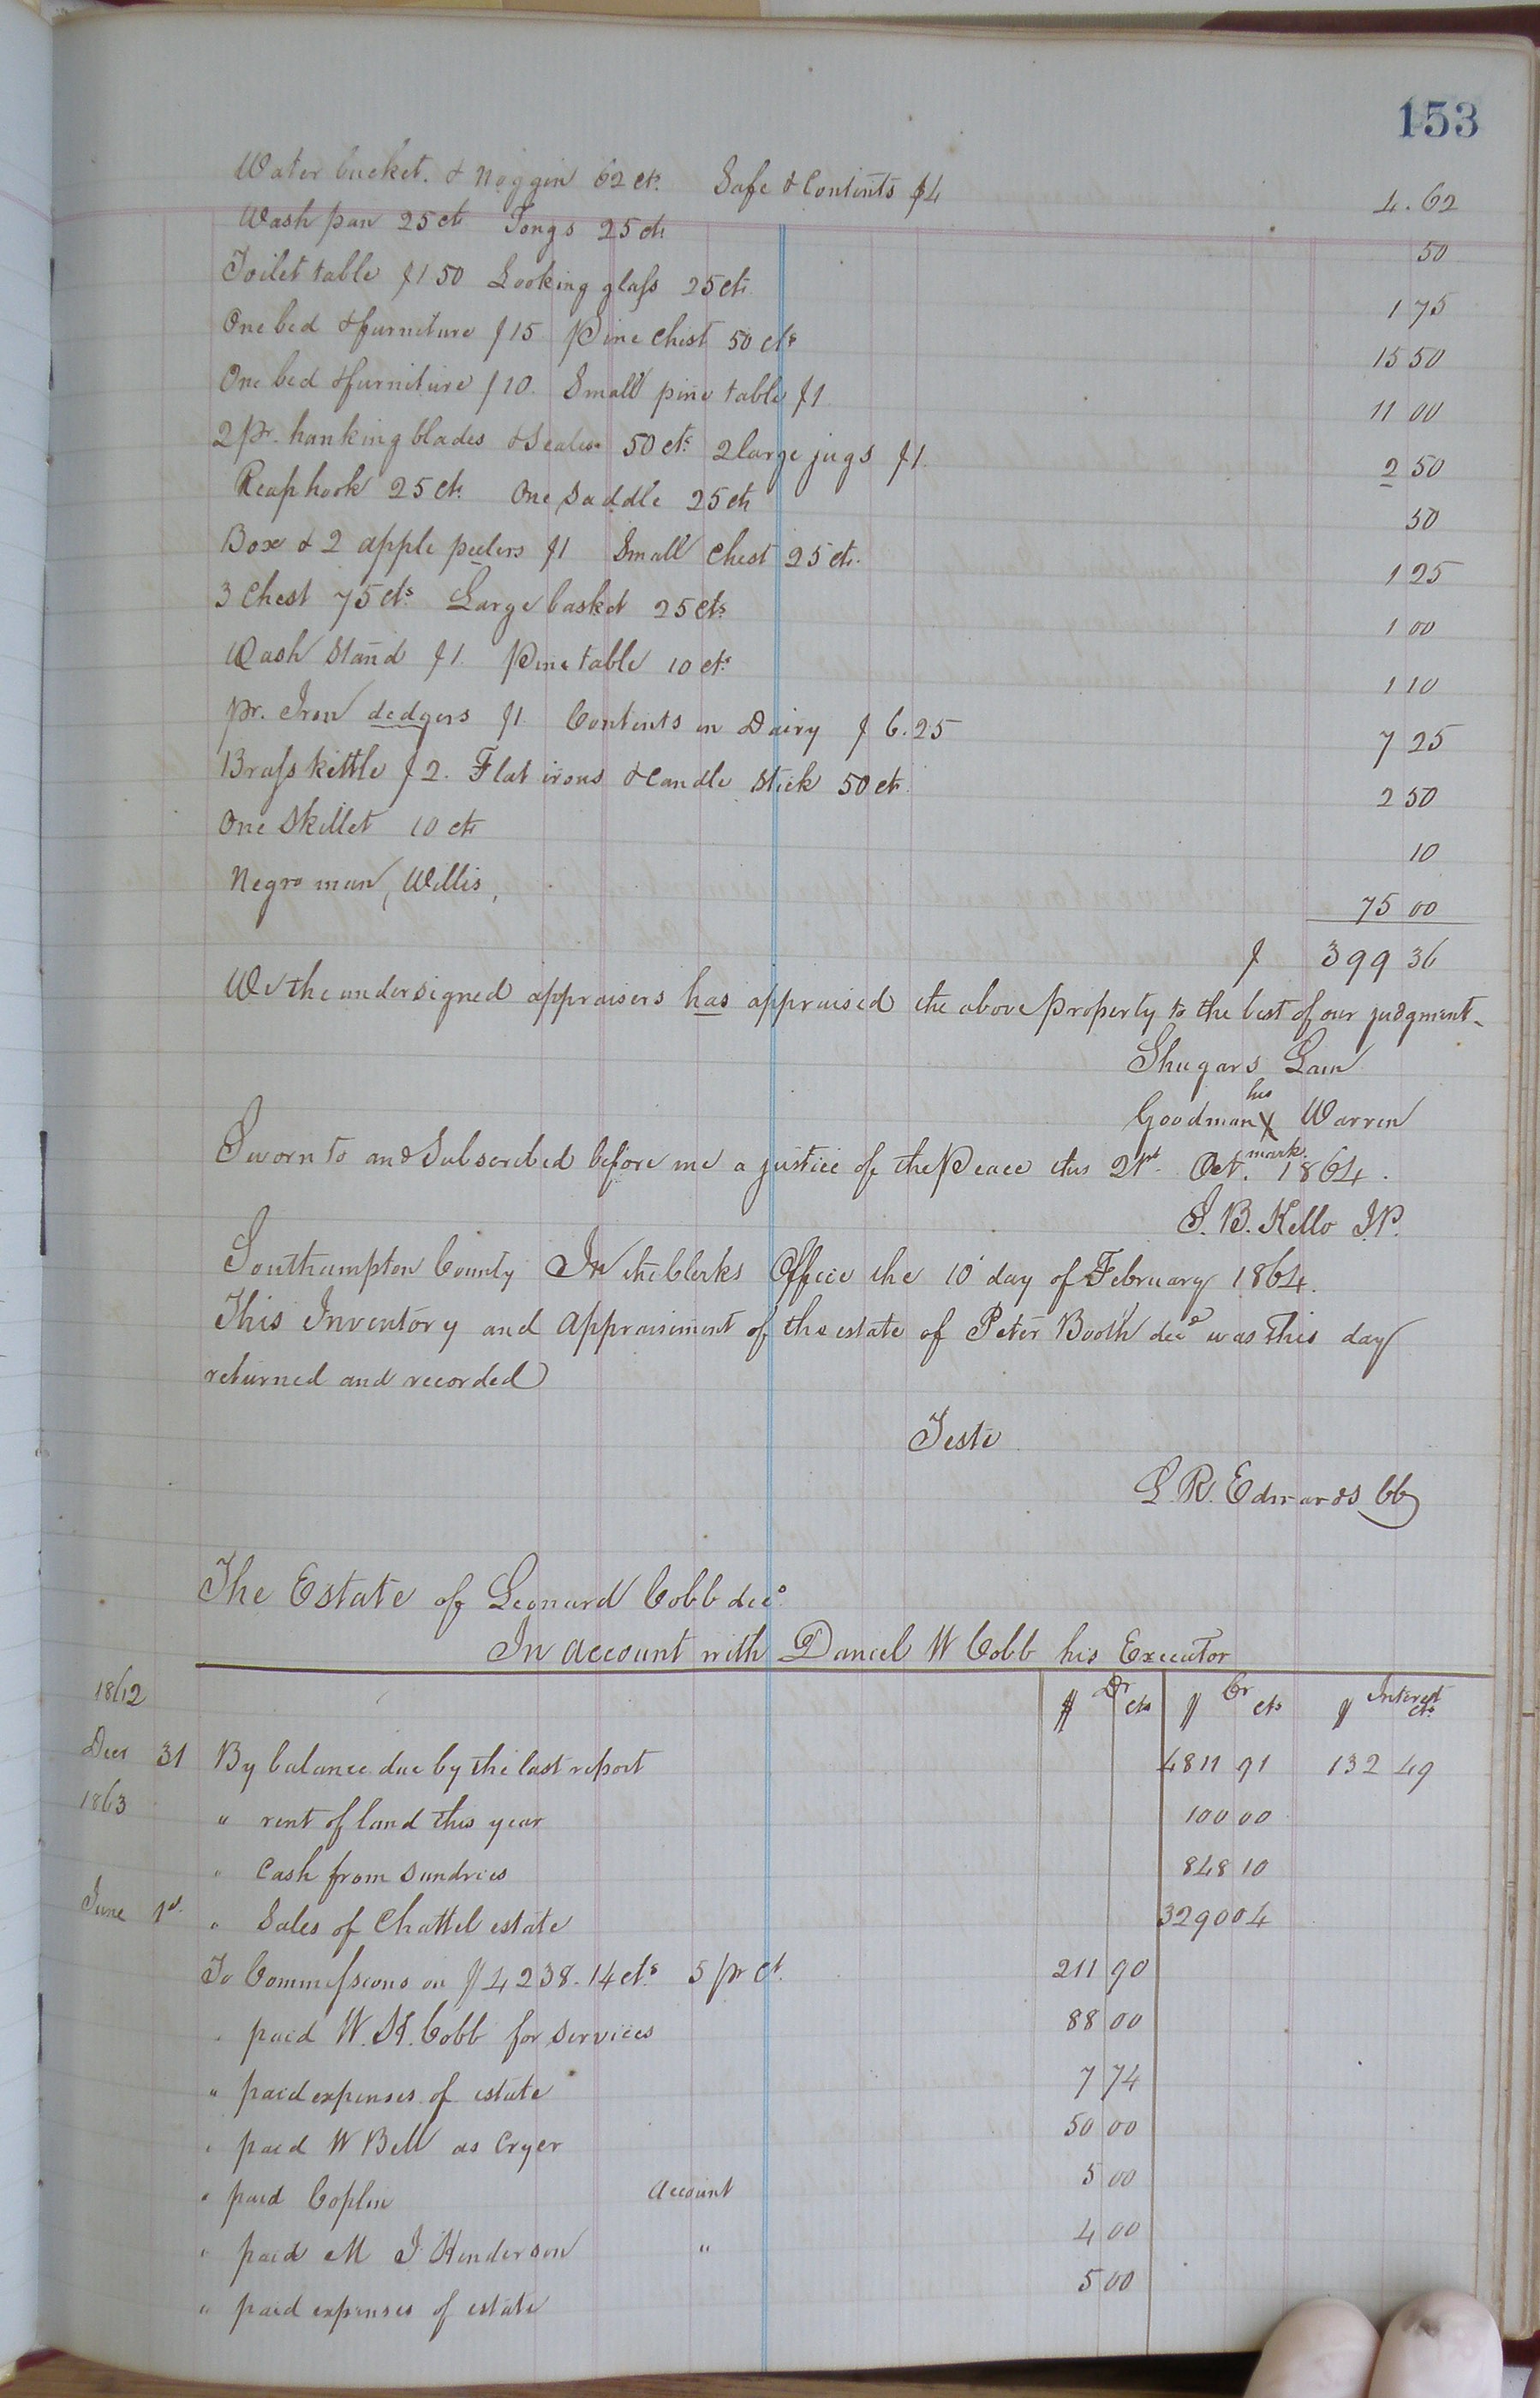 153
Water bucket. & Noggin 62 cts. Safe & Contents $4 4.62
Wash pan 25 cts Tongs 25 cts 50
Toilet table $1 50 Looking glass 25 cts. 1 75
One bed & furniture $15 Pine Chest 50 cts 15 50
One bed & furniture $10. Small pine table $1 11 00
2 pr. hanking blades & Scales 50 cts. 2 large jugs $1. 2 50
Reaphook 25 cts. One Saddle 25 cts 50
Box & 2 apple peelers $1 Small Chest 25 cts. 1 25
3 Chest 75 cts. Large basket 25 cts. 1 00
Wash Stand $1. Pine table 10 cts. 1 10
pr. Iron dedgers $1. Contents in Dairy $6.25 7 25
Brass kettle $2. Flat irons & Candle Stick 50 cts. 2 50
One Skillet 10 cts 10
Negro man, Willis, 75 00
$ 399 36
We the undersigned appraisers has appraised the above property to the best of our judgment.
Shugars Lain
his
Goodman X Warren
mark.
Sworn to and Subscribed before me a justice of the Peace this 21st. Oct. 1864.
S. B. Kello J.P.
Southampton County In the Clerks Office the 10 day of February 1864.
This Inventory and Appraisement of the estate of Peter Booth decd was this day
returned and recorded
Teste
L. R. Edwards CC
The Estate of Leonard Cobb decd.
In account with Daniel W Cobb his Executor
1862 $ Dr cts $ Cr cts $ Interest cts.
Decr 31 By balance due by the last report 4811 91 132 49
1863 " rent of land this year 100 00
" Cash from Sundries 848 10
June 1st. " Sales of Chattel estate 3290 04
To Commissions on $4238.14 cts. 5 pr ct. 211 90
" paid W. H. Cobb for services 88 00
" paid expenses of estate 7 74
" paid W Bell as Cryer 50 00
" paid Coplin Account 5 00
" paid M J Henderson " 4 00
" paid expenses of estate 5 00